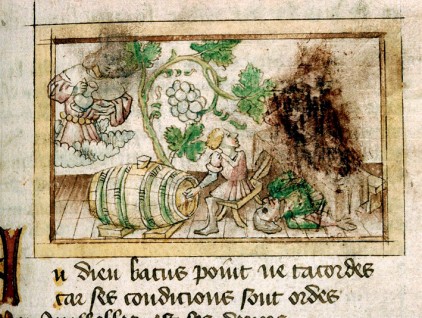 Au dieu bacus point ne tacordes
car ses condicions sont ordes